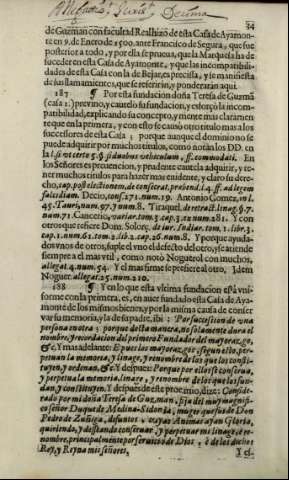 24
de Guzman con facultad Real hizo de esta Casa de Ayamon-
te en 9. de Enero de 1500. ante Francisco de Segura, que fue
posterior a todo, y por ella se prueua, que la Marquesa ha de
suceder en esta Casa de Ayamonte, y que las incompatibili-
dades de esta Casa con la de Bejar, es precissa, y se manifiesta
de sus llamamientos, que se referiràn, y ponderaràn aqui.
187 ¶ Por esta fundacion doña Teresa de Guzmã
(casa 1.) preuino, y cautelò su fundacion, y esforçò la incom-
patibilidad, explicando su concepto, y mente mas claramen-
te que en la primera, y con esto fe causò otro titulo mas a los
successores de esta Casa ; porque aunque el dominio no se
puede adquirir por muchos titulos, como notan los DD. en
la l. si vt certo 5. §. si duobus vehiculum , ff. commodati. En
los Señores es preuencion, y prudente cautela adquirir, y te-
ner muchos titulos para hazer mas euidente, y claro su dere-
cho, cap. post electionem, de conces. præbend. l. 4. ff. ad legem
falcidiam. Decio, cons. 271. num. 19. Antonio Gomez, in l.
45. Tauri, num. 57. 7. num. 8. Tiraquel. de retract. linag. §. 7.
num. 71. Cancerio, variar. tom. 3. cap. 3. ex num. 281. Y con
otros que refiere Dom. Solorç. de iur. Indiar. tom. 1. libr. 3.
cap. 1. num. 61. tom. 2. lib. 2. cap. 26. num. 8. Y porque ayuda-
dos vnos de otros, suple el vno el defecto del otro, y se atiende
siempre a el mas vtil, como notò Noguerol con muchos,
allegat. 4. num. 54. Y el mas firme se prefiere al otro, Idem
Noguer. allegat. 25. num. 210.
188 ¶ Y en lo que esta vltima fundacion està vni-
forme con la primera, es, en auer fundado esta Casa de Aya-
monte de los mismos bienes, y por la misma causa de conser-
var su memoria, y la de su padre, ibi : Por su succession de vna
persona en otra ; porque de esta manera, no solamente dura el
nombre, y recordacion del primero Fundador del mayorazgo,
&c. Y mas adelante: E pues los mayorazgos segun ello, per-
petuan la memoria, y linage, y renombre de los que los consti-
tuyen, y ordenan. &c. Y despues: Porque por ellos se conserua,
y perpetua la memoria, linage, y renombre de los que los fun-
dan, y constituyen. Y despues de este proemio, dize: Conside-
rado por mi doña Teresa de Guzman, fija del muy magnifi-
co señor Duque de Medina-Sidonia, muger que fue de Don
Pedro de Zuñiga, defuntos , cuyas Animas ayan Gloria,
queriendo, y desseando conseruar, y perpetuar mi linage, è re-
nombre, principalmente por seruicio de Dios, è de los dichos
Rey, y Reyna mis señores,